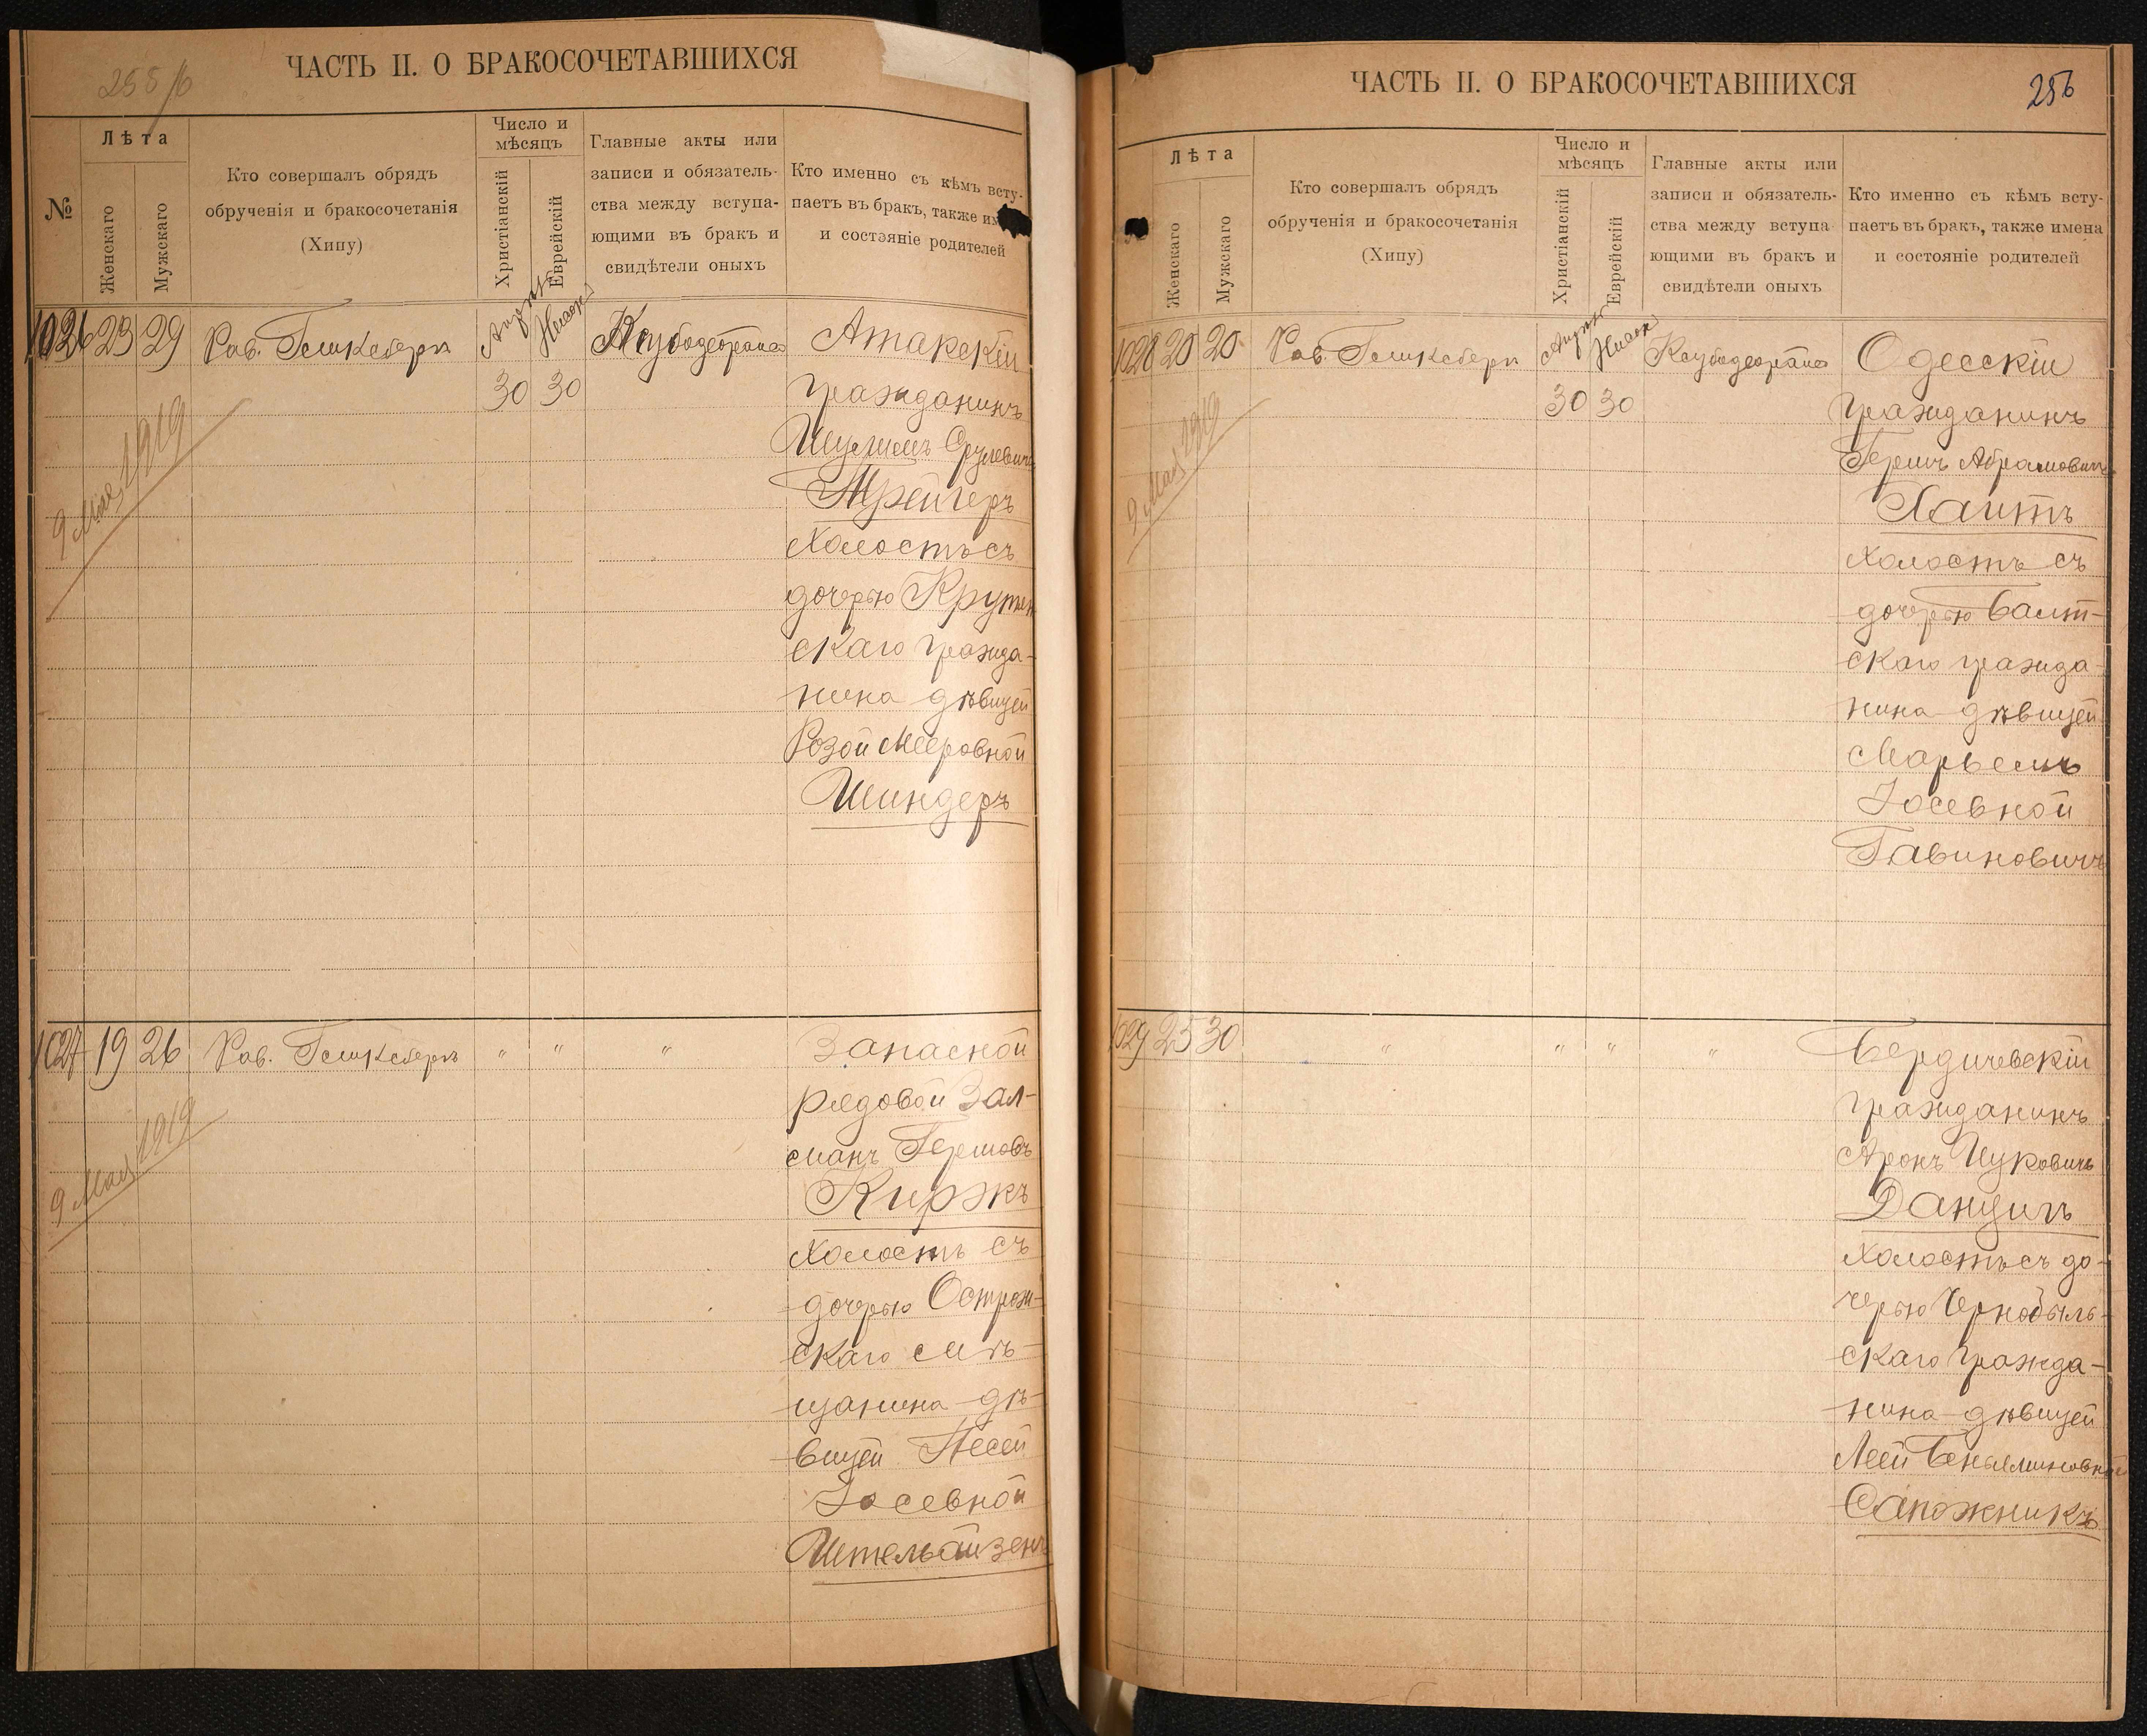 255/б
ЧАСТЬ II. О БРАКОСОЧЕТАВШИХСЯ
№
Лѣта
Женскаго
Мужскаго
Кто совершалъ обрядъ
обрученія и бракосочетанія
(Хипу)
Число и
мѣсяцъ
Христіанскій
Еврейскій
Главные акты или
записи и обязатель-
ства между вступа-
ющими въ бракъ и
свидѣтели оныхъ
Кто именно съ кѣмъ всту-
паетъ въ бракъ, также
и состояніе родителей
1026 23 29 Рав. Апрѣля Нисонъ Атакскій
30 30 гражданинъ
Шулимъ Срулевичъ
Трейгеръ
холостъ съ
дочерью
скаго гражда-
нина дѣвицей
Розой Мееровной
Шиндеръ
9 Мая 1919
1027 19 26 Рав. " " " Запасной
рядовой Зал-
манъ Гершовъ
Киржъ
холостъ съ
дочерью Острож-
скаго мѣ-
щанина дѣ-
вицей Песей
Іосевной
Штельвайзенъ
9 Мая 1919
ЧАСТЬ II. О БРАКОСОЧЕТАВШИХСЯ
256
Лѣта
Женскаго
Мужскаго
Кто совершалъ обрядъ
обрученія и бракосочетанія
(Хипу)
Число и
мѣсяцъ
Христіанскій
Еврейскій
Главные акты или
записи и обязатель-
ства между вступа
ющими въ бракъ и
свидѣтели оныхъ
Кто именно съ кѣмъ всту-
паетъ въ бракъ, также имена
и состояніе родителей
1028 20 20 Рав. Апрѣля Нисонъ Одесскій
30 30 гражданинъ
Гершъ Абрамовичъ
Хаитъ
холостъ съ
дочерью Балт-
скаго гражда-
нина дѣвицей
Марьемъ
Іосевной
Гавиновичъ
9 Мая 1919
1029 25 30 " " " " Бердичевскій
гражданинъ
Аронъ Ицковичъ
Данцигъ
холостъ съ до-
черью Чернобыль-
скаго гражда-
нина дѣвицей
Леей Беньяминовной
Сапожникъ